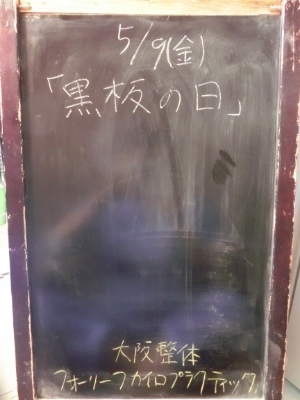 5/9(金)
「黒板の日」
大阪整体
フォーリーフカイロプラクティック